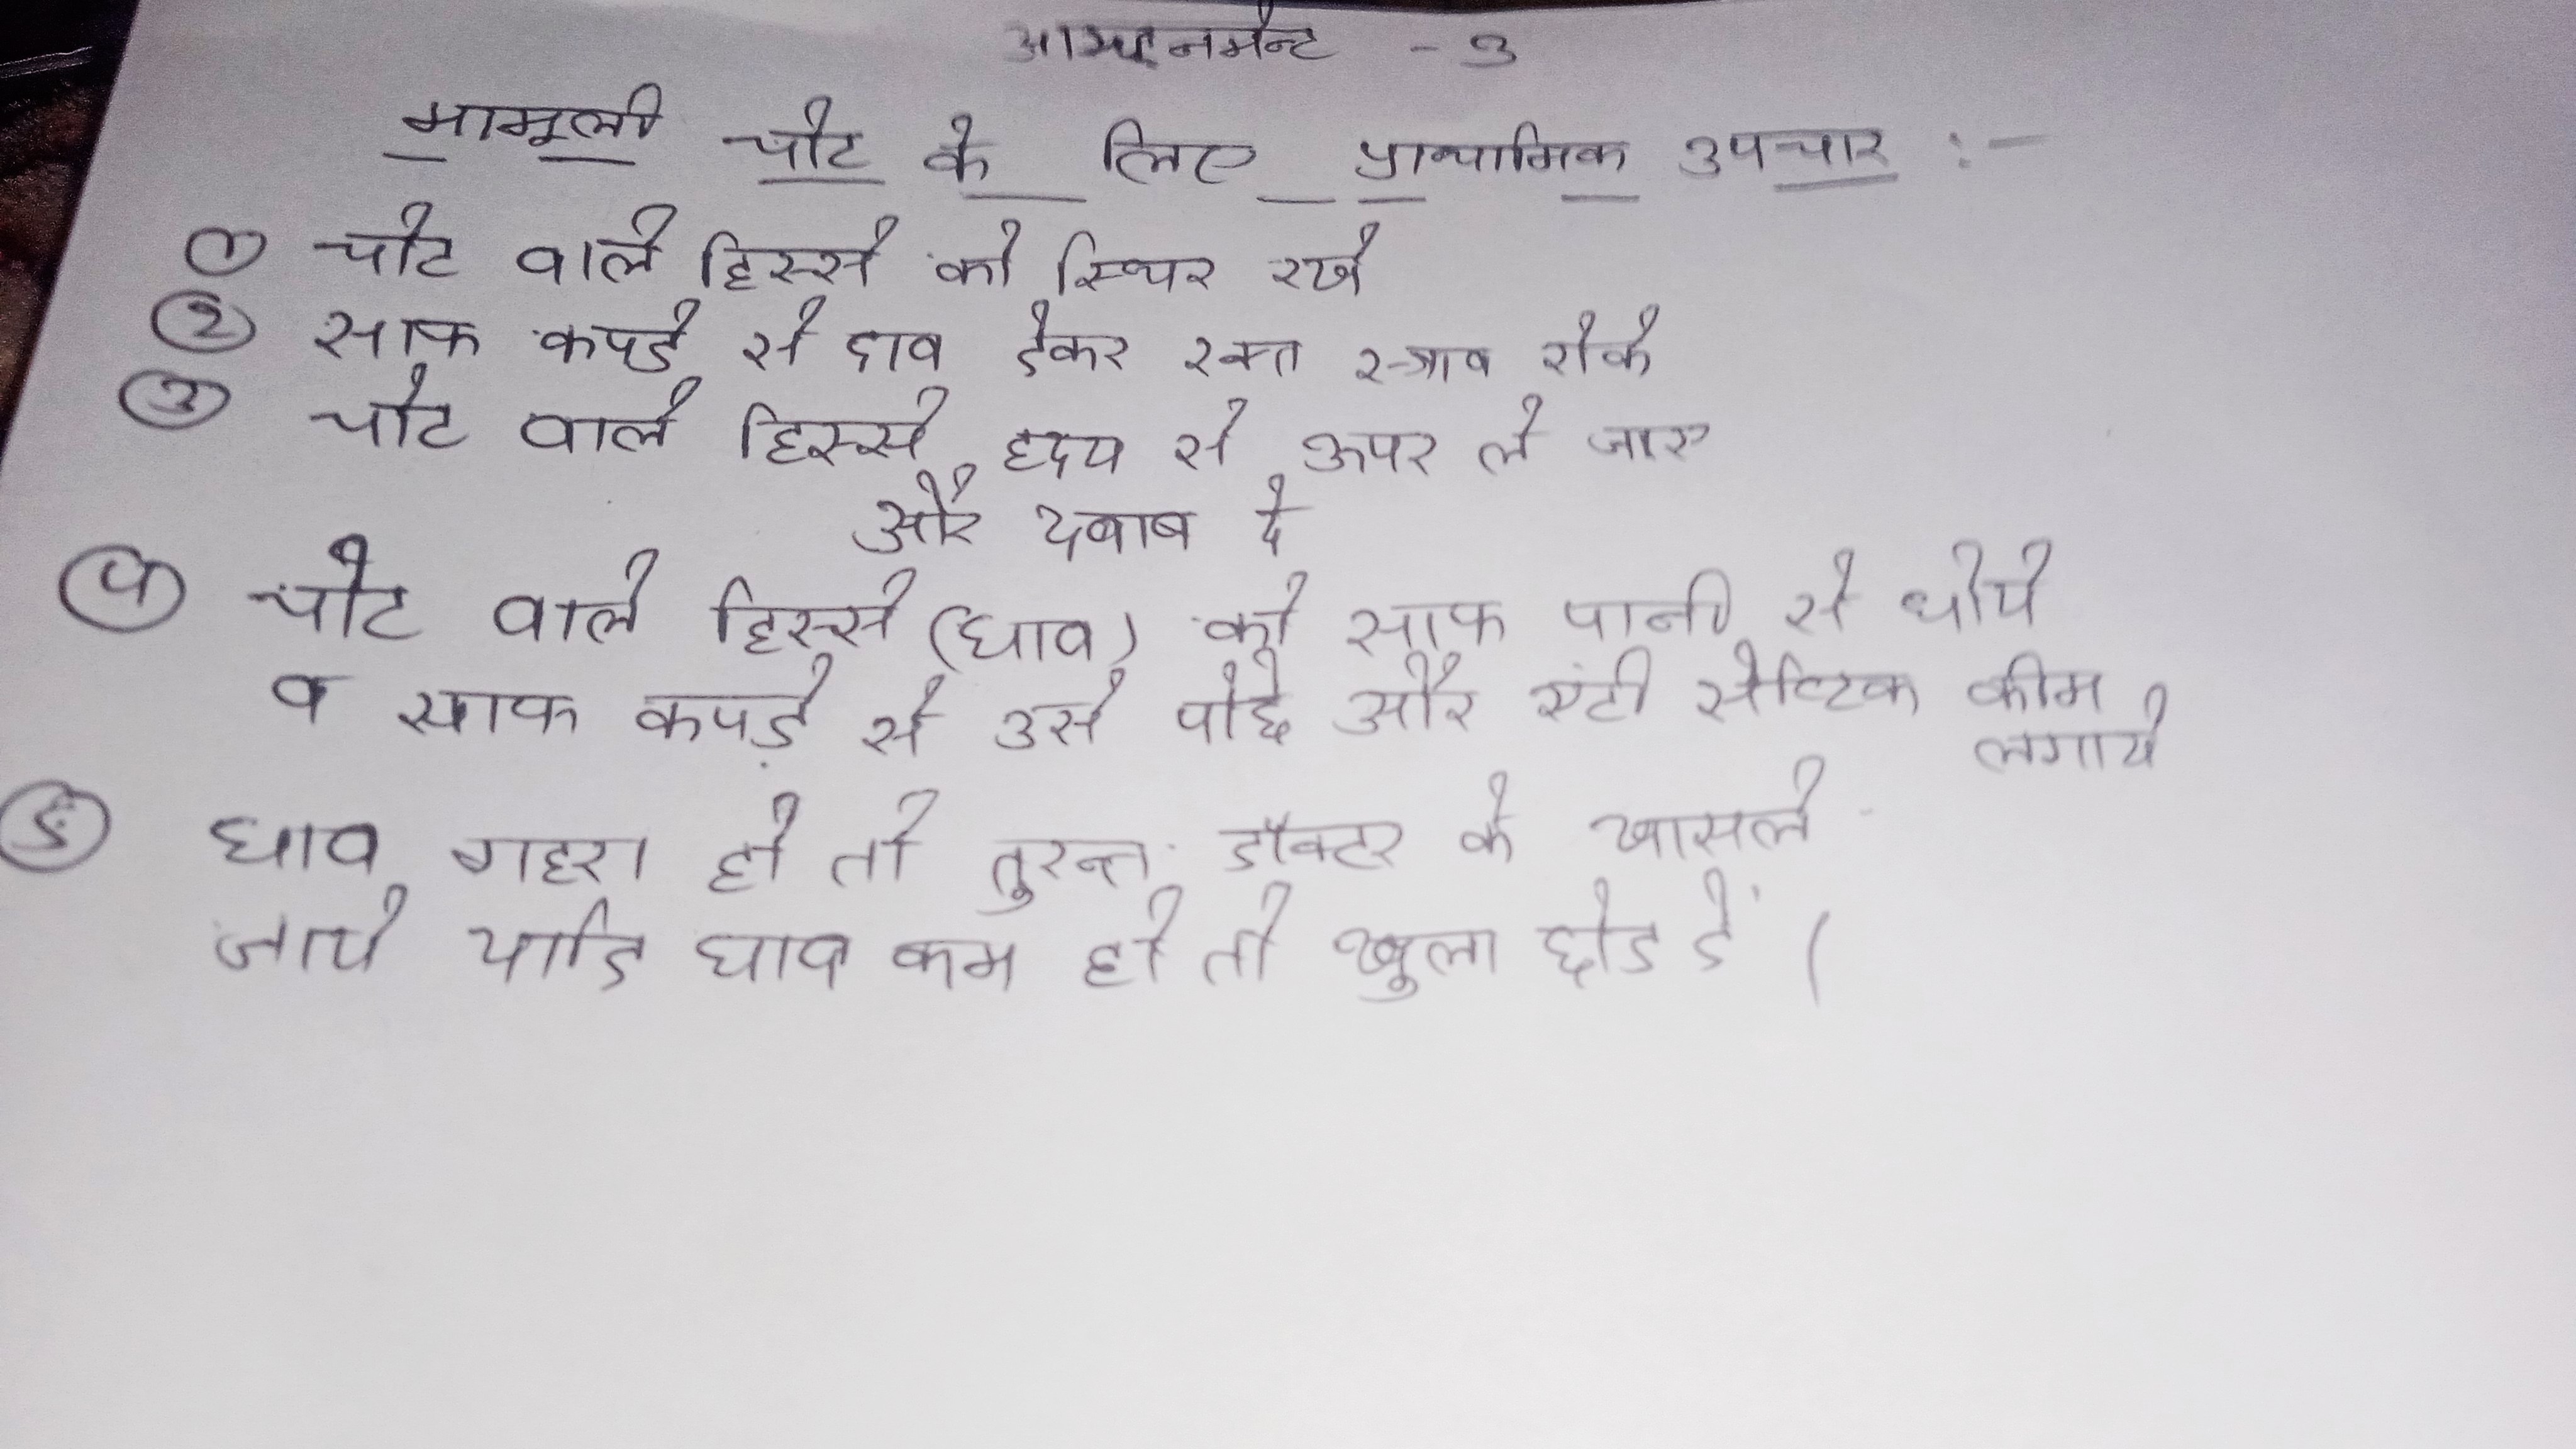 - 3
मामूली चोट के लिए प्राथामिक उपचार :-
① चोट वाले हिस्से को स्थिर रखे
② साफ कपडे से दाव देकर रक्त स्त्राव रोके
③ चोट वाले हिस्से हृदय से ऊपर ले जाए
और दबाब दे
④ चोट वाले हिस्से (घाव) को साफ पानी से धोये
व साफ कपड़े से उसे पोछे और एंटी सेप्टिक क्रीम
लगाये
⑤ घाव गहरा हो तो तुरन्त डॉक्टर के
जाये यादि घाव कम हो तो खुला छोड दें ।